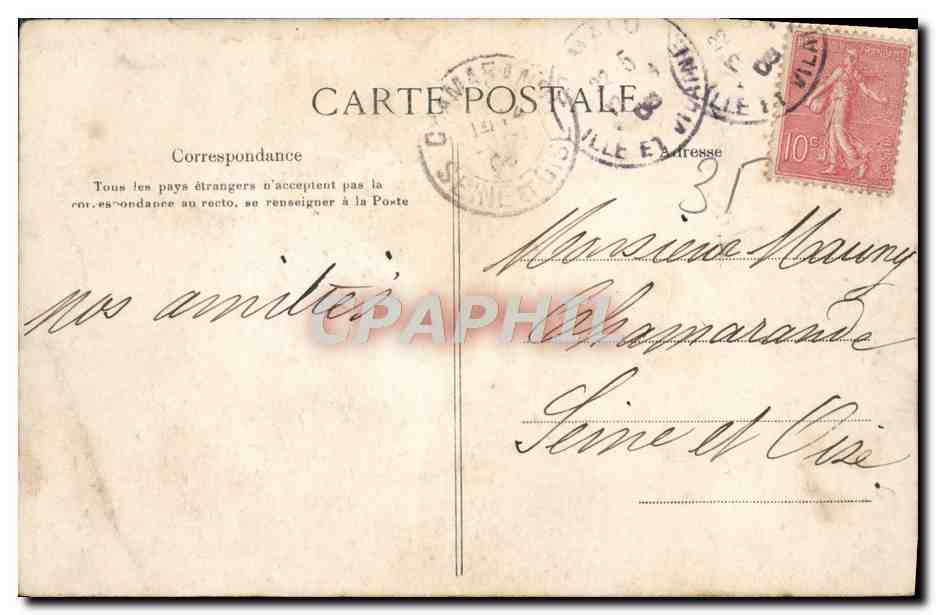 CARTE POSTALE
Correspondance
Tous les pays étrangers n'acceptent pas la
correspondance au recto, se renseigner à la Poste
Adresse
35
10c
CHAMARANDE
SEINE ET OISE
MALO
22 5
08
ILLE ET VILAINE
ILLE ET VILAINE
nos amitiés
CPAPHIL
Monsieur Mauny
Chamarande
Seine et Oise